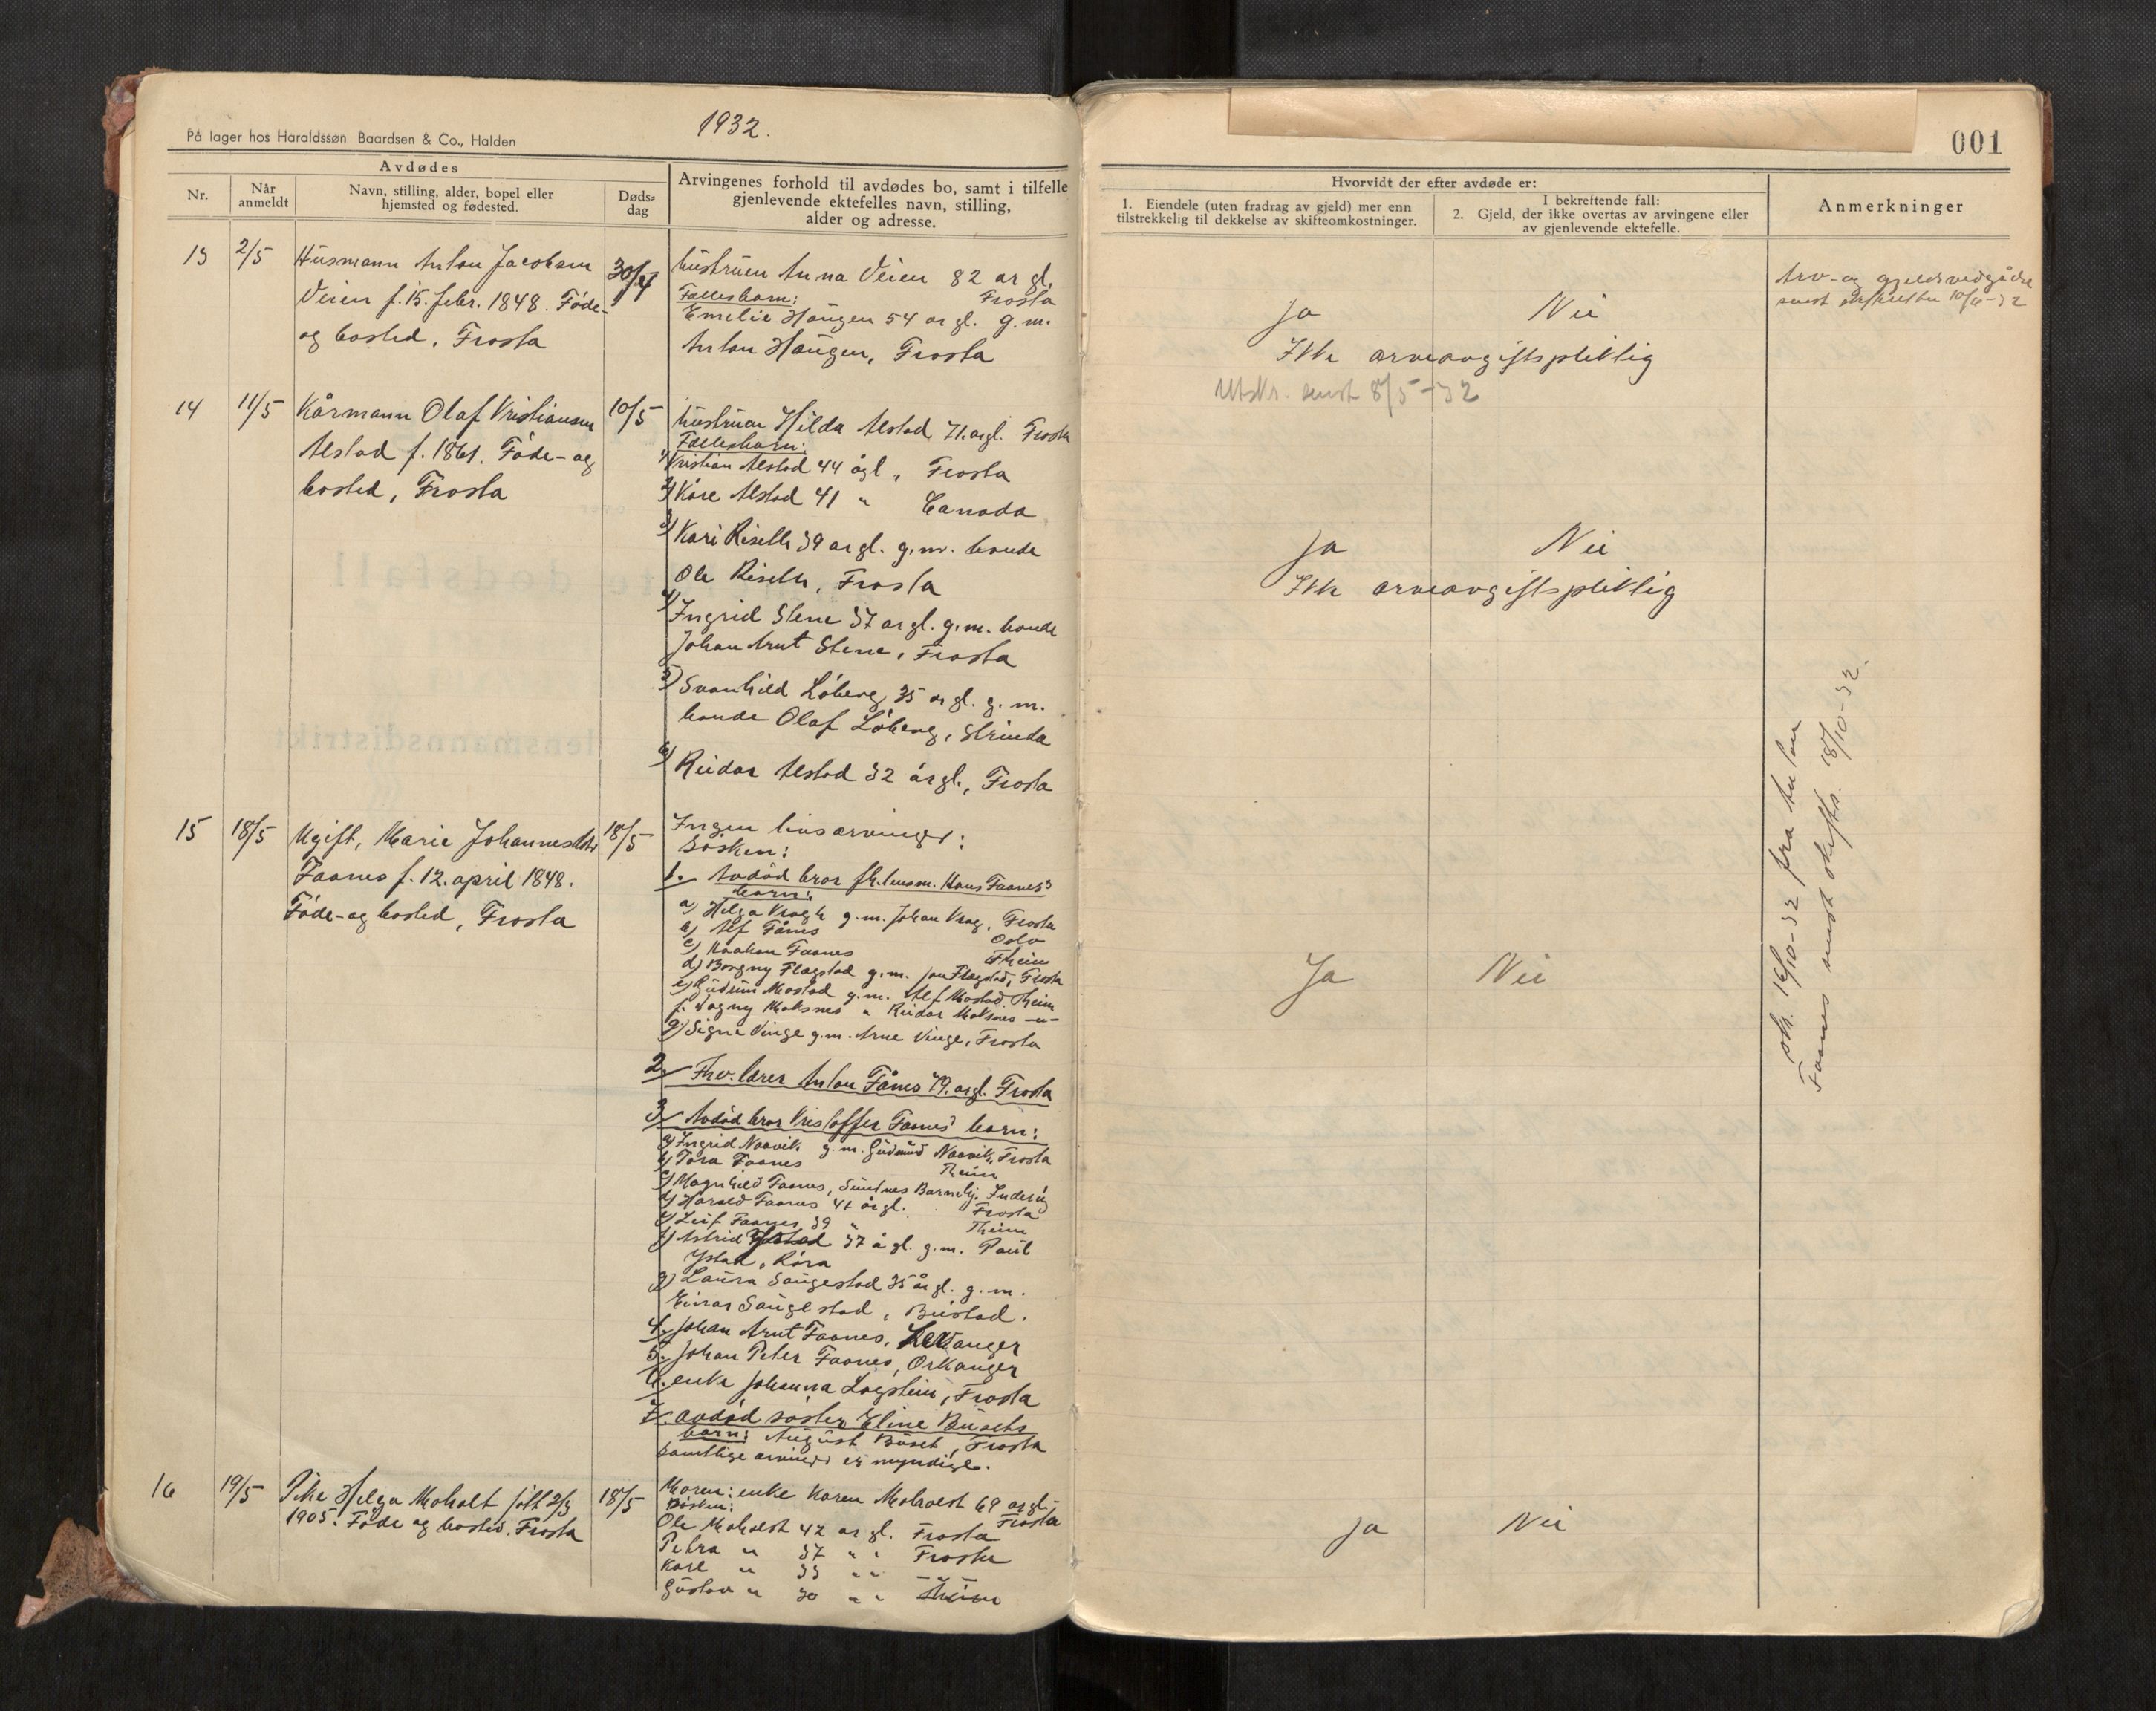 1932.
På lager hos Haraldssøn Baardsen & Co., Halden
001
Avdødes
Nr.
Når anmeldt
Navn, stilling, alder, bopel eller
hjemsted og fødested.
Døds-
dag
Arvingenes forhold til avdødes bo, samt i tilfelle
gjenlevende ektefelles navn, stilling,
alder og adresse.
Hvorvidt der efter avdøde er:
1. Eiendele (uten fradrag av gjeld) mer enn
tilstrekkelig til dekkelse av skifteomkostninger.
I bekreftende fall:
2. Gjeld, der ikke overtas av arvingene eller
av gjenlevende ektefelle.
Anmerkninger
13 2/5 Husmann Anton Jacobsen
Veien f. 15. febr. 1848. Føde-
og bosted, Frosta
30/4
hustruen Anna Veien 82 år gl.
Frosta
Fællesbarn:
Emelie Haugen 54 år gl. g.m.
Anton Haugen, Frosta
Ja Nei
Ikke arveavgiftspliktig
Utskr. sendt 8/5-32
Arv- og gjeldsvedgåelse
sendt skifteretten 10/6-32
14 11/5 Kårmann Olaf Kristiansen
Alstad f. 1861. Føde- og
bosted, Frosta
10/5
hustruen Hilda Alstad, 71 årgl. Frosta
Fællesbarn:
1) Kristian Alstad 44 å gl, Frosta
2) Kåre Alstad 41 " Canada
3) Kari Riseth 39 år gl. g.m. bonde
Ole Riseth, Frosta
4) Ingrid Stene 37 år gl. g.m. bonde
Johan Arnt Stene, Frosta
5) Svanhild Løberg 35 år gl. g.m.
bonde Olaf Løberg, Strinda
6) Reidar Alstad 32 år gl., Frosta
Ja Nei
Ikke arveavgiftspliktig
15 18/5 Ugift, Marie Johannesdtr
Faanes f. 12. april 1848.
Føde- og bosted, Frosta
18/5
Ingen livsarvinger:
Søsken:
1. Avdød bror fh. lensm. Hans Faanes'
barn:
a) Helga Kragh g.m. Johan Krag, Frosta
b) Alf Fånes Oslo
c) Haakon Faanes Theim
d) Borgny Flagstad g.m. Jon Flagstad, Frosta
e) Gudrun Mostad g.m. Alf Mostad, Theim
f. Dagny Moksnes " Reidar Moksnes -"-
g) Signe Vinge g.m. Arne Vinge, Frosta
2. Fhv. lærer Anton Fånes 79. årgl. Frosta
3. Avdød bror Kristoffer Faanes' barn:
a) Ingrid Naavik g.m. Gudmund Naavik, Frosta
b) Tora Faanes Theim
c) Magnhild Faanes, Sundnes Barnehj. Inderøy
d) Harald Faanes 41 år gl. Frosta
e) Leif Faanes 39 " Theim
f) Astrid Ystad 37 å gl. g.m. Paul
Ystad, Røra
g) Laura Saugestad 35 år gl. g.m.
Einar Saugestad, Beistad.
4. Johan Arnt Faanes, Levanger
5. Johan Peter Faanes, Orkanger
6. enke Johanna Logstein, Frosta
7. avdød søster Eline Buseths
barn: August Buseth, Frosta
samtlige arvinger er myndige.
Ja Nei
skr. 16/10-32 fra Anton
Faanes sendt skifts. 18/10-32.
16 19/5 Pike Helga Moholt født 2/3
1905. Føde og bosted. Frosta
18/5
Moren: enke Karen Moholdt 69 år gl.
Frosta
Søsken:
Ole Moholdt 42 år gl. Frosta
Petra " 37 " " Frosta
Karl " 33 " " — " —
Gustav " 30 " " Theim
Ja Nei